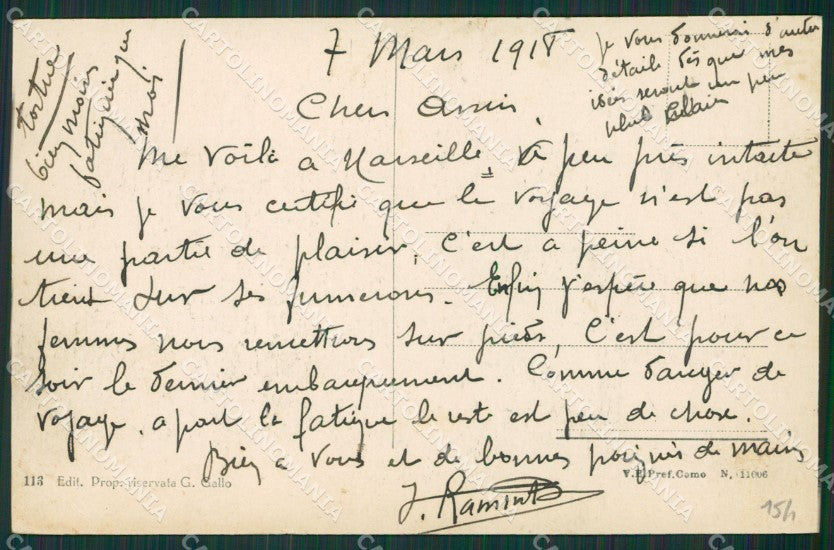 7 Mars 1918
Je vous donnerai d'autres
détails dès que mes
idées seront un peu
plus claires
tortue
bien moins
fatiguée que
moi.
Cher Ami,
Me voilà à Marseille, à peu près intacte
mais je vous certifie que le voyage n'est pas
une partie de plaisir, c'est à peine si l'on
tient sur ses
Enfin j'espère que nos
femmes nous remettrons sur pieds, c'est pour ce
soir le dernier embarquement. Comme danger de
voyage, à part la fatigue le reste est peu de chose.
Bien à vous et de bonnes poignés de mains
113 Edit. Prop. riservata G. Gallo
V. R. Pref. Como N. 11006
15/1
CARTOLINOMANIA